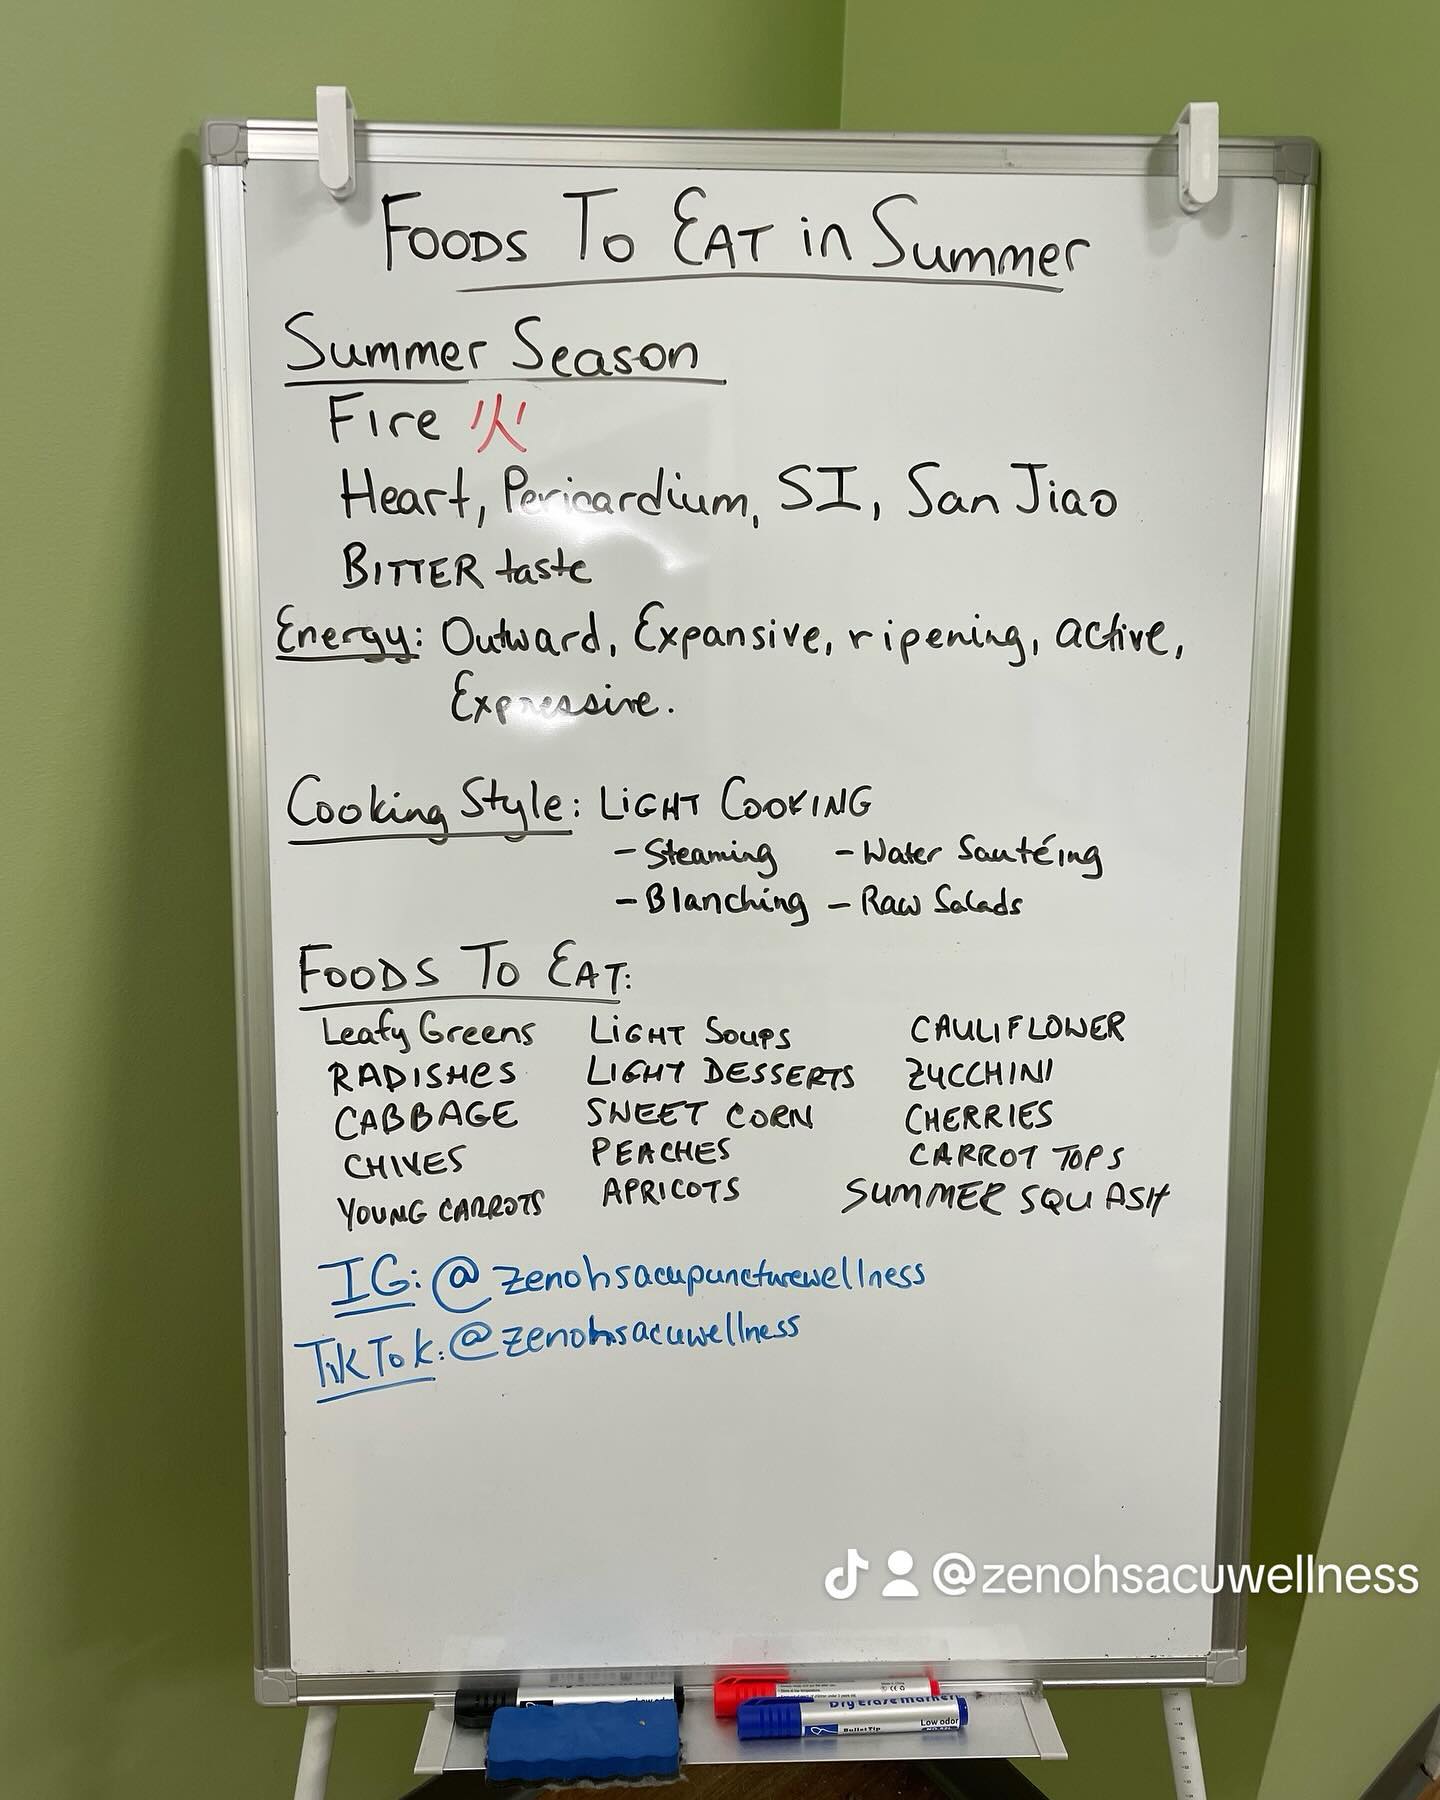 FOODS TO EAT in Summer
Summer Season
Fire 火
Heart, Pericardium, SI, San Jiao
BITTER taste
Energy: Outward, Expansive, ripening, active,
Expressive.
Cooking Style: LIGHT COOKING
- Steaming - Water Sautéing
- Blanching - Raw Salads
FOODS TO EAT:
Leafy Greens LIGHT SOUPS CAULIFLOWER
RADISHES LIGHT DESSERTS ZUCCHINI
CABBAGE SWEET CORN CHERRIES
CHIVES PEACHES CARROT TOPS
YOUNG CARROTS APRICOTS SUMMER SQUASH
IG: @zenohsacupuncturewellness
TikTok: @zenohsacuwellness
@zenohsacuwellness
Low odor
Dry Erase Markers
Bullet Tip Low odor